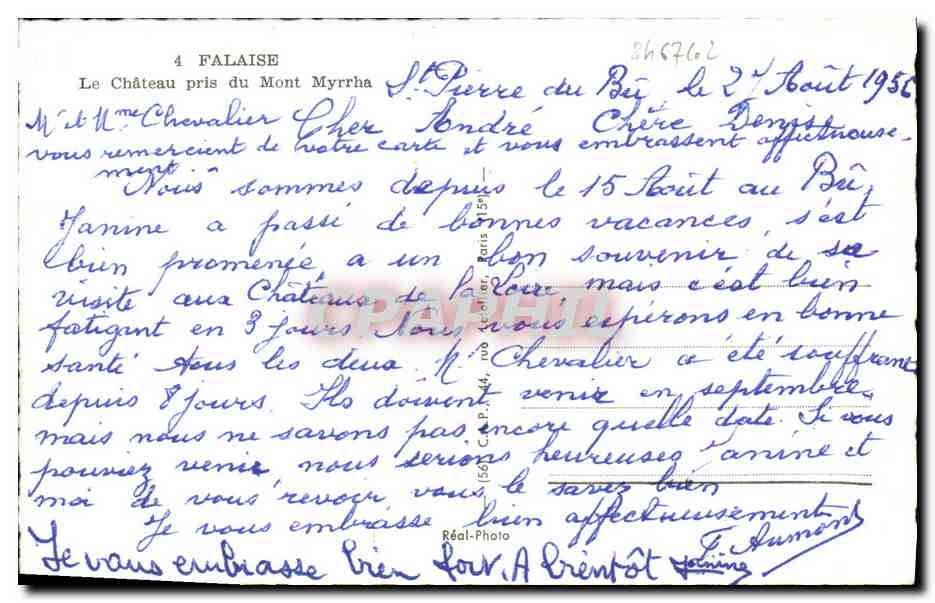 4 FALAISE
Le Château pris du Mont Myrrha
St Pierre du Bû le 27 Août 1956
Mr et Mme Chevalier Cher André Chère Denise
vous remercient de votre carte et vous embrassent affectueuse-
ment
Nous sommes depuis le 15 Août au Bû,
Janine a passé de bonnes vacances, s'est
bien promenée a un bon souvenir de sa
visite aux Châteaux de la Loire, mais c'est bien
fatigant en 3 jours. Nous vous espérons en bonne
santé tous les deux. M. Chevalier a été souffrant
depuis 8 jours. Ils doivent venir en septembre
mais nous ne savons pas encore quelle date. Si vous
pouviez venir nous serions heureuses Janine et
moi de vous revoir vous le savez bien
Je vous embrasse bien affectueusement
F. Aumont
Je vous embrasse bien fort. A bientôt Janine
Réal-Photo
CPAPHIL
(56) C.A.P. - 44, rue Letellier, Paris (15e) —